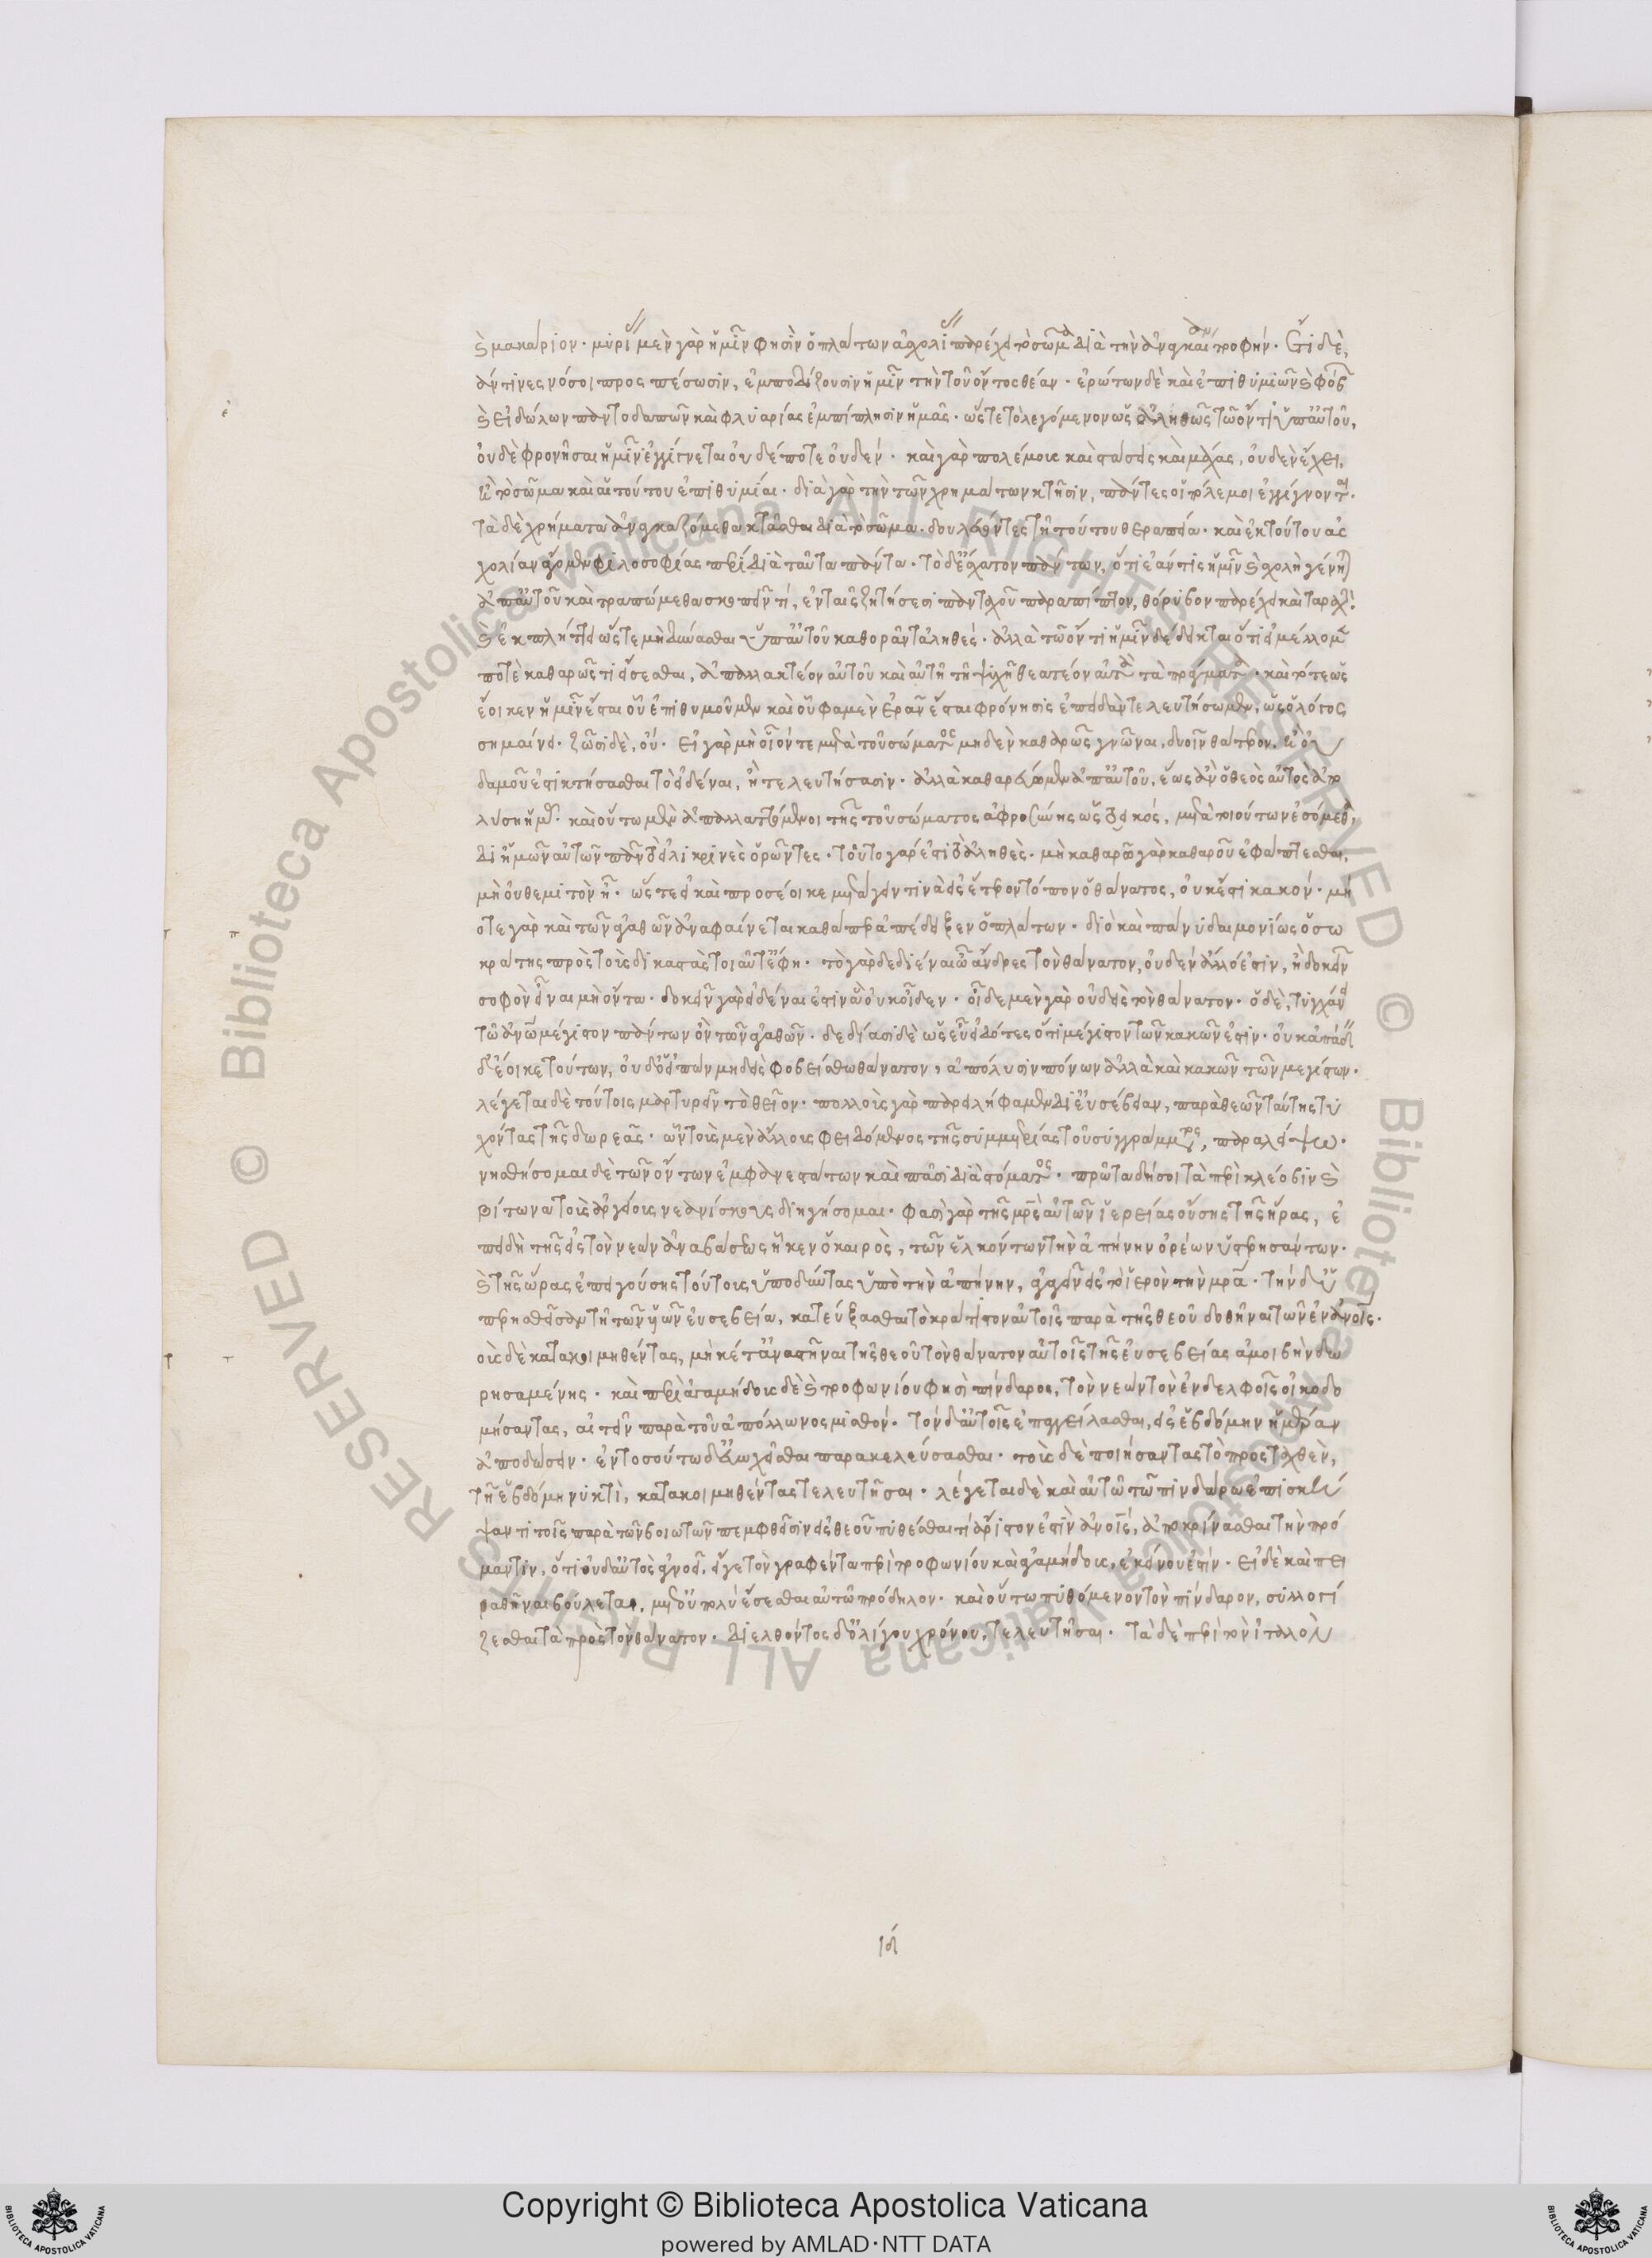 καὶ μακάριον· μυρίας μὲν γὰρ ἡμῖν φησὶν ὁ πλάτων ἀσχολίας παρέχει τὸ σῶμα διὰ τὴν ἀναγκαίαν τροφήν· ἔτι δὲ,
ἄν τινες νόσοι προσπέσωσιν, ἐμποδίζουσιν ἡμῖν τὴν τοῦ ὄντος θέαν· ἐρώτων δὲ καὶ ἐπιθυμιῶν καὶ φόβων
καὶ εἰδώλων παντοδαπῶν καὶ φλυαρίας ἐμπίπλησιν ἡμᾶς· ὥστε τὸ λεγόμενον ὡς ἀληθῶς τῶ ὄντι ὑπ' αὐτοῦ,
οὐδὲ φρονῆσαι ἡμῖν ἐγγίνεται οὐδέποτε οὐδέν· καὶ γὰρ πολέμους καὶ στάσεις καὶ μάχας, οὐδὲν ἔχει,
ἢ τὸ σῶμα καὶ αἱ τούτου ἐπιθυμίαι· διὰ γὰρ τὴν τῶν χρημάτων κτῆσιν, πάντες οἱ πόλεμοι ἐγγίγνονται·
τὰ δὲ χρήματα ἀναγκαζόμεθα κτᾶσθαι διὰ τὸ σῶμα· δουλεύοντες τῆ τούτου θεραπεία· καὶ ἐκ τούτου ἀσ
χολίαν ἄγομεν φιλοσοφίας πέρι διὰ ταῦτα πάντα· τὸ δ' ἔσχατον πάντων, ὅτι ἐάν τις ἡμῖν καὶ σχολὴ γένηται
ἀπ' αὐτοῦ καὶ τραπώμεθα σκοπεῖν τί, ἐν ταῖς ζητήσεσι πανταχοῦ παραπίπτον, θόρυβον παρέχει καὶ ταραχὴν
καὶ ἐκπλήττει ὥστε μὴ δύνασθαι ὑπ' αὐτοῦ καθορᾶν τἀληθές· ἀλλὰ τῶ ὄντι ἡμῖν δέδεικται ὅτι εἰ μέλλομέν
ποτὲ καθαρῶς τι εἴσεσθαι, ἀπαλλακτέον αὐτοῦ καὶ αὐτῆ τῆ ψυχῆ θεατέον αὐτὰ τὰ πράγματα· καὶ τότε ὡς
ἔοικεν ἡμῖν ἔσται οὗ ἐπιθυμοῦμεν καὶ οὗ φαμὲν ἐρᾶν ἔσται φρόνησις ἐπειδὰν τελευτήσωμεν, ὡς ὁ λόγος
σημαίνει· ζῶσι δὲ, οὔ· εἰ γὰρ μὴ οἷόν τε μετὰ τοῦ σώματος μηδὲν καθαρῶς γνῶναι, δυοῖν θάτερον· ἢ οὐ
δαμοῦ ἐστι κτήσασθαι τὸ εἰδέναι, ἢ τελευτήσασιν· ἀλλὰ καθαρεύωμεν ἀπ' αὐτοῦ, ἕως ἂν ὁ θεὸς αὐτὸς ἀπο
λύση ἡμᾶς· καὶ οὕτω μὲν ἀπαλλαττόμενοι τῆς τοῦ σώματος ἀφροσύνης ὡς τὸ εἰκός, μετὰ τοιούτων ἐσόμεθα,
δι' ἡμῶν αὐτῶν πᾶν τὸ εἰλικρινὲς ὁρῶντες· τοῦτο γάρ ἐστι τὸ ἀληθὲς· μὴ καθαρῶ γὰρ καθαροῦ ἐφάπτεσθαι,
μὴ οὐ θεμιτὸν ἦ· ὥστε εἰ καὶ προσέοικε μετάγειν τινὰ εἰς ἕτερον τόπον ὁ θάνατος, οὐκ ἔστι κακόν· μή
ποτε γὰρ καὶ τῶν ἀγαθῶν ἀναφαίνεται καθάπερ ἀπέδειξεν ὁ πλάτων· διὸ καὶ πάνυ δαιμονίως ὁ σω
κράτης πρὸς τοὺς δικαστὰς τοιαῦτ' ἔφη· τὸ γὰρ δεδιέναι ὦ ἄνδρες τὸν θάνατον, οὐδὲν ἄλλό ἐστιν, ἢ δοκεῖν
σοφὸν εἶναι μὴ ὄντα· δοκεῖν γὰρ εἰδέναι ἐστὶν ἃ οὐκ οἶδεν· οἶδε μὲν γὰρ οὐδεὶς τὸν θάνατον· οὐδὲ, εἰ τυγχάνει
τῶ ἀνθρώπω μέγιστον πάντων ὂν τῶν ἀγαθῶν· δεδίασι δὲ ὡς εὖ εἰδότες ὅτι μέγιστον τῶν κακῶν ἐστιν· οὐκ ἀπάδειν
δ' ἔοικε τούτων, οὐδ' ὁ εἰπὼν μηδεὶς φοβείσθω θάνατον, ἀπόλυσιν πόνων ἀλλὰ καὶ κακῶν τῶν μεγίστων·
λέγεται δὲ τούτοις μαρτυρεῖν τὸ θεῖον· πολλοὺς γὰρ παρειλήφαμεν δι' εὐσέβειαν, παρὰ θεῶν ταύτης τυ
χόντας τῆς δωρεᾶς· ὧν τοὺς μὲν ἄλλους φειδόμενος τῆς συμμετρίας τοῦ συγγράμματος, παραλείψω·
μνησθήσομαι δὲ τῶν ὄντων ἐμφανεστάτων καὶ πᾶσι διὰ στόματος· πρῶτα δή σοι τὰ περὶ κλέοβιν καὶ
βίτωνα τοὺς ἀργείους νεανίσκους διηγήσομαι· φασὶ γὰρ τῆς μητρὸς αὐτῶν ἱερείας οὔσης τῆς ἥρας, ἐ
πειδὴ τῆς εἰς τὸν νεὼν ἀναβάσεως ἧκεν ὁ καιρὸς, τῶν ἑλκόντων τὴν ἀπήνην ὀρέων ὑστερησάντων·
καὶ τῆς ὥρας ἐπειγούσης τούτους ὑποδύντας ὑπὸ τὴν ἀπήνην, ἀγαγεῖν εἰς τὸ ἱερὸν τὴν μητέρα· τὴν δ' ὑ
περησθεῖσαν τῆ τῶν υἱῶν εὐσεβεία, κατεύξασθαι τὸ κράτιστον αὐτοῖς παρὰ τῆς θεοῦ δοθῆναι τῶν ἐν ἀνθρώποις·
τοὺς δὲ κατακοιμηθέντας, μηκέτ' ἀναστῆναι τῆς θεοῦ τὸν θάνατον αὐτοῖς τῆς εὐσεβείας ἀμοιβὴν δω
ρησαμένης· καὶ περὶ ἀγαμήδους δὲ καὶ τροφωνίου φησὶ πίνδαρος, τὸν νεὼν τὸν ἐν δελφοῖς οἰκοδο
μήσαντας, αἰτεῖν παρὰ τοῦ ἀπόλλωνος μισθόν· τὸν δ' αὐτοῖς ἐπαγγείλασθαι, εἰς ἑβδόμην ἡμέραν
ἀποδώσειν· ἐν τοσούτω δ' εὐωχεῖσθαι παρακελεύσασθαι· τοὺς δὲ ποιήσαντας τὸ προσταχθὲν,
τῆ ἑβδόμη νυκτὶ, κατακοιμηθέντας τελευτῆσαι· λέγεται δὲ καὶ αὐτῶ τῶ πινδάρω ἐπισκή
ψαντι τοῖς παρὰ τῶν βοιωτῶν πεμφθεῖσιν εἰς θεοῦ πυθέσθαι τί ἄριστον ἐστὶν ἀνθρώποις, ἀποκρίνασθαι τὴν πρό
μαντιν, ὅτι οὐδ' αὐτὸς ἀγνοεῖ, εἴγε τὸν γραφέντα περὶ τροφωνίου καὶ ἀγαμήδους, ἐκείνου ἐστίν· εἰ δὲ καὶ πει
ραθῆναι βούλεται, μετ' οὐ πολὺ ἔσεσθαι αὐτῶ πρόδηλον· καὶ οὕτω πυθόμενον τὸν πίνδαρον, συλλογί
ζεσθαι τὰ πρὸς τὸν θάνατον· διελθόντος δ' ὀλίγου χρόνου, τελευτῆσαι· τὰ δὲ περὶ τὸν ἰταλὸν
Copyright © Biblioteca Apostolica Vaticana
powered by AMLAD·NTT DATA